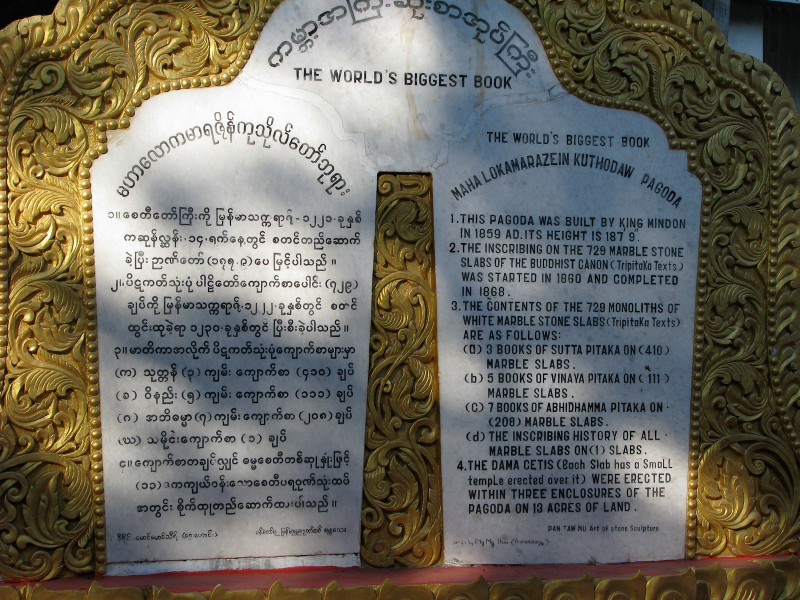 ကမ္ဘာ့အကြီးဆုံးစာအုပ်ကြီး
THE WORLD'S BIGGEST BOOK
မဟာလောကမာရဇိန်ကုသိုလ်တော်ဘုရား
၁။ စေတီတော်ကြီးကို မြန်မာသက္ကရာဇ် - ၁၂၂၁ - ခုနှစ်
ကဆုန်လ္ဆန်း - ၁၄ - ရက်နေ့တွင် စတင်တည်ဆောက်
ခဲ့ပြီး ဉာဏ်တော် (၁၈၇'၉) ပေ မြင့်ပါသည် ။
၂။ ပိဋကတ်သုံးပုံ ပါဠိတော်ကျောက်စာပေါင်း (၇၂၉)
ချပ်ကို မြန်မာသက္ကရာဇ် ၁၂၂၂ - ခုနှစ်တွင် စတင်
ထွင်းထုခဲ့ရာ ၁၂၃၀ - ခုနှစ်တွင် ပြီးစီးခဲ့ပါသည် ။
၃။ မာတိကာအလိုက် ပိဋကတ်သုံးပုံကျောက်စာများမှာ
(က) သုတ္တန် (၃) ကျမ်း ကျောက်စာ (၄၁၀) ချပ်
(ခ) ဝိနည်း (၅) ကျမ်း ကျောက်စာ (၁၁၁) ချပ်
(ဂ) အဘိဓမ္မာ (၇) ကျမ်း ကျောက်စာ (၂၀၈) ချပ်
(ဃ) သမိုင်းကျောက်စာ (၁) ချပ်
၄။ ကျောက်စာတချပ်လျှင် ဓမ္မစေတီတစ်ဆူနှုံးဖြင့်
(၁၁) ဧကကျယ်ဝန်းသောစေတီပရဝုဏ်သုံးထပ်
အတွင်း စိုက်ထူတည်ဆောက်ထားပါသည် ။
THE WORLD'S BIGGEST BOOK
MAHA LOKAMARAZEIN KUTHODAW PAGODA
1. THIS PAGODA WAS BUILT BY KING MINDON
IN 1859 AD. ITS HEIGHT IS 187'9.
2. THE INSCRIBING ON THE 729 MARBLE STONE
SLABS OF THE BUDDHIST CANON (TripitaKa Texts)
WAS STARTED IN 1860 AND COMPLETED
IN 1868.
3. THE CONTENTS OF THE 729 MONOLITHS OF
WHITE MARBLE STONE SLABS (TripitaKa Texts)
ARE AS FOLLOWS:
(a) 3 BOOKS OF SUTTA PITAKA ON (410)
MARBLE SLABS.
(b) 5 BOOKS OF VINAYA PITAKA ON (111)
MARBLE SLABS.
(C) 7 BOOKS OF ABHIDHAMMA PITAKA ON -
(208) MARBLE SLABS.
(d) THE INSCRIBING HISTORY OF ALL -
MARBLE SLABS ON (1) SLABS.
4. THE DAMA CETIS (Each Slab has a Small
temple erected over it) WERE ERECTED
WITHIN THREE ENCLOSURES OF THE
PAGODA ON 13 ACRES OF LAND.
PAN TAW MU Art of stone Sculpture